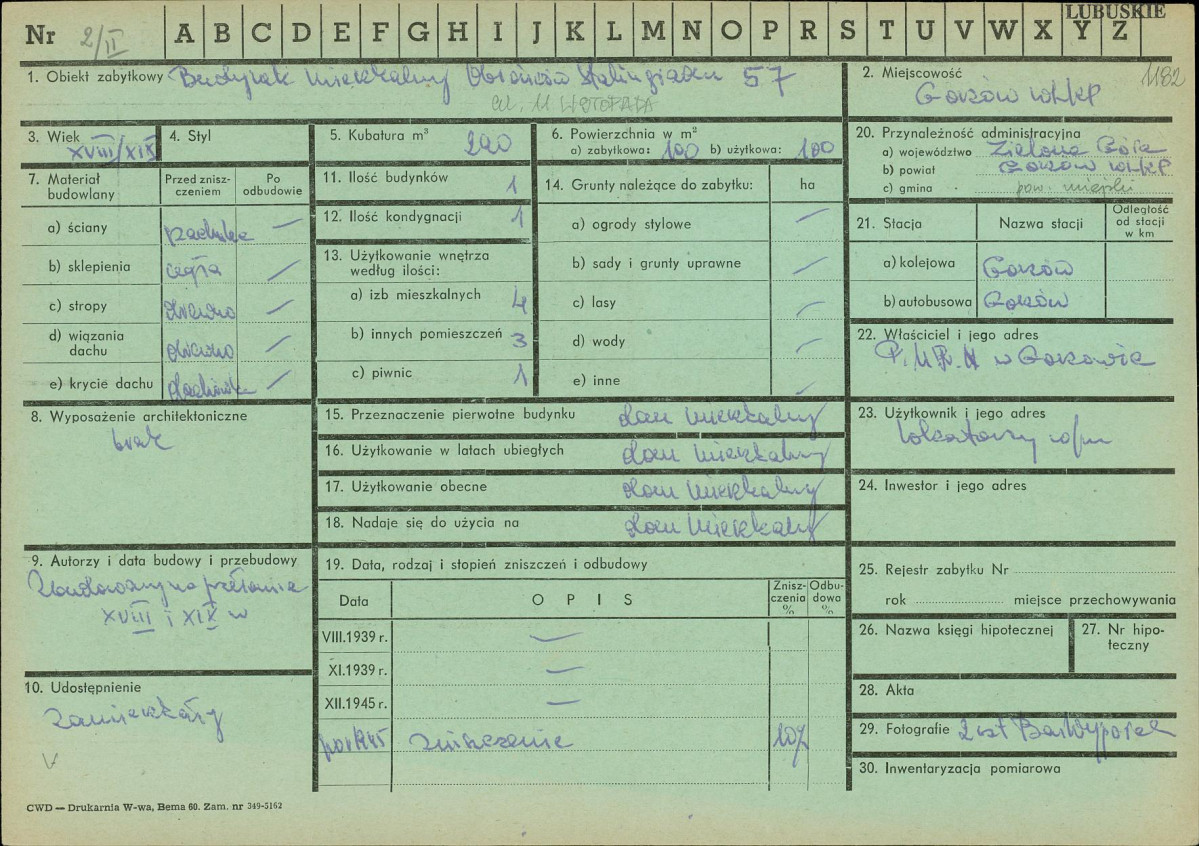 LUBUSKIE
Nr 2/II A B C D E F G H I J K L M N O P R S T U V W X Y Z
1. Obiekt zabytkowy Budynek mieszkalny Obrońców Stalingradu 57
ul. 11 LISTOPADA
2. Miejscowość 1182
Gorzów Wlkp
3. Wiek XVIII/XIX
4. Styl
5. Kubatura m³ 290
6. Powierzchnia w m²
a) zabytkowa: 100 b) użytkowa: 100
20. Przynależność administracyjna
a) województwo Zielona Góra
b) powiat Gorzów Wlkp
c) gmina pow. miejski
7. Materiał budowlany
Przed zniszczeniem
Po odbudowie
a) ściany —
b) sklepienia cegła —
c) stropy drewno —
d) wiązania dachu drewno —
e) krycie dachu dachówka —
11. Ilość budynków 1
12. Ilość kondygnacji 1
13. Użytkowanie wnętrza według ilości:
a) izb mieszkalnych 4
b) innych pomieszczeń 3
c) piwnic 1
14. Grunty należące do zabytku: ha
a) ogrody stylowe —
b) sady i grunty uprawne —
c) lasy —
d) wody —
e) inne —
21. Stacja Nazwa stacji Odległość od stacji w km
a) kolejowa Gorzów
b) autobusowa Gorzów
22. Właściciel i jego adres
P.M.R.N w Gorzowie
8. Wyposażenie architektoniczne
brak
15. Przeznaczenie pierwotne budynku dom mieszkalny
16. Użytkowanie w latach ubiegłych dom mieszkalny
17. Użytkowanie obecne dom mieszkalny
18. Nadaje się do użycia na dom mieszkalny
23. Użytkownik i jego adres
lokatorzy w/m
24. Inwestor i jego adres
9. Autorzy i data budowy i przebudowy
Zbudowany na przełomie
XVIII i XIX w
19. Data, rodzaj i stopień zniszczeń i odbudowy
Data OPIS Zniszczenia % Odbudowa %
VIII.1939 r. —
XI.1939 r. —
XII.1945 r. —
po 1945 zniszczenie 10%
25. Rejestr zabytku Nr
rok miejsce przechowywania
26. Nazwa księgi hipotecznej
27. Nr hipoteczny
28. Akta
29. Fotografie 2 szt
30. Inwentaryzacja pomiarowa
10. Udostępnienie
zamieszkały
V
CWD — Drukarnia W-wa, Bema 60. Zam. nr 349-5162